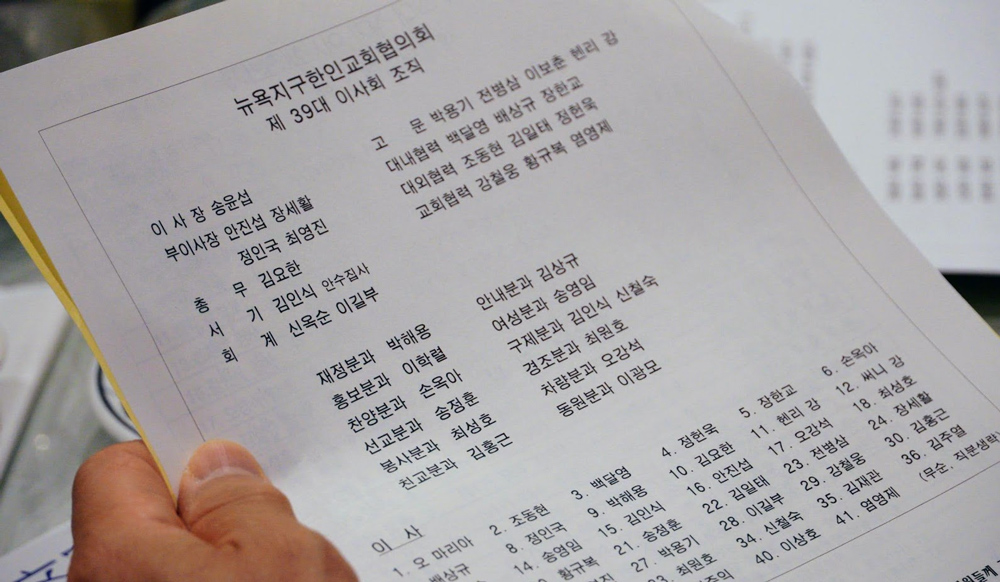 뉴욕지구한인교회협의회
제 39대 이사회 조직
이 사 장 송윤섭
부이사장 안진섭 장세활
정인국 최영진
총 무 김요한
서 기 김인식 안수집사
회 계 신옥순 이길부
고 문 박용기 전병삼 이보춘 헨리 강
대내협력 백달영 배상규 장한교
대외협력 조동현 김일태 정헌욱
교회협력 강철웅 황규복 염영제
재정분과 박해용
홍보분과 이학렬
찬양분과 손옥아
선교분과 송정훈
봉사분과 최성호
친교분과 김홍근
안내분과 김상규
여성분과 송영임
구제분과 김인식 신철숙
경조분과 최원호
차량분과 오강석
동원분과 이광모
이 사
1. 오 마리아 2. 조동현 3. 백달영 4. 정헌욱 5. 장한교 6. 손옥아
배상규 8. 정인국 9. 박해용 10. 김요한 11. 헨리 강 12. 써니 강
14. 송영임 15. 김인식 16. 안진섭 17. 오강석 18. 최성호
황규복 21. 송정훈 22. 김일태 23. 전병삼 24. 장세활
27. 박용기 28. 이길부 29. 강철웅 30. 김홍근
최원호 34. 신철숙 35. 김재관 36. 김주열
40. 이상호 41. 염영제 (무순, 직분생략)